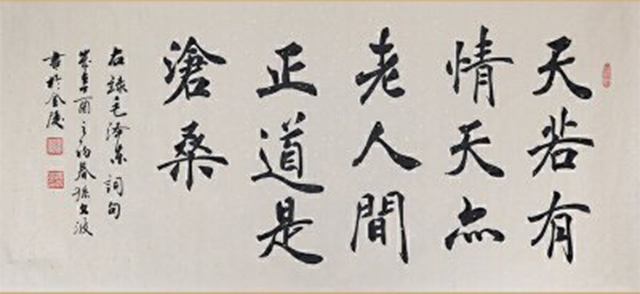 天若有
情天亦
老人間
正道是
滄桑
右錄毛澤東詞句
酉之初春孫波
書於金陵